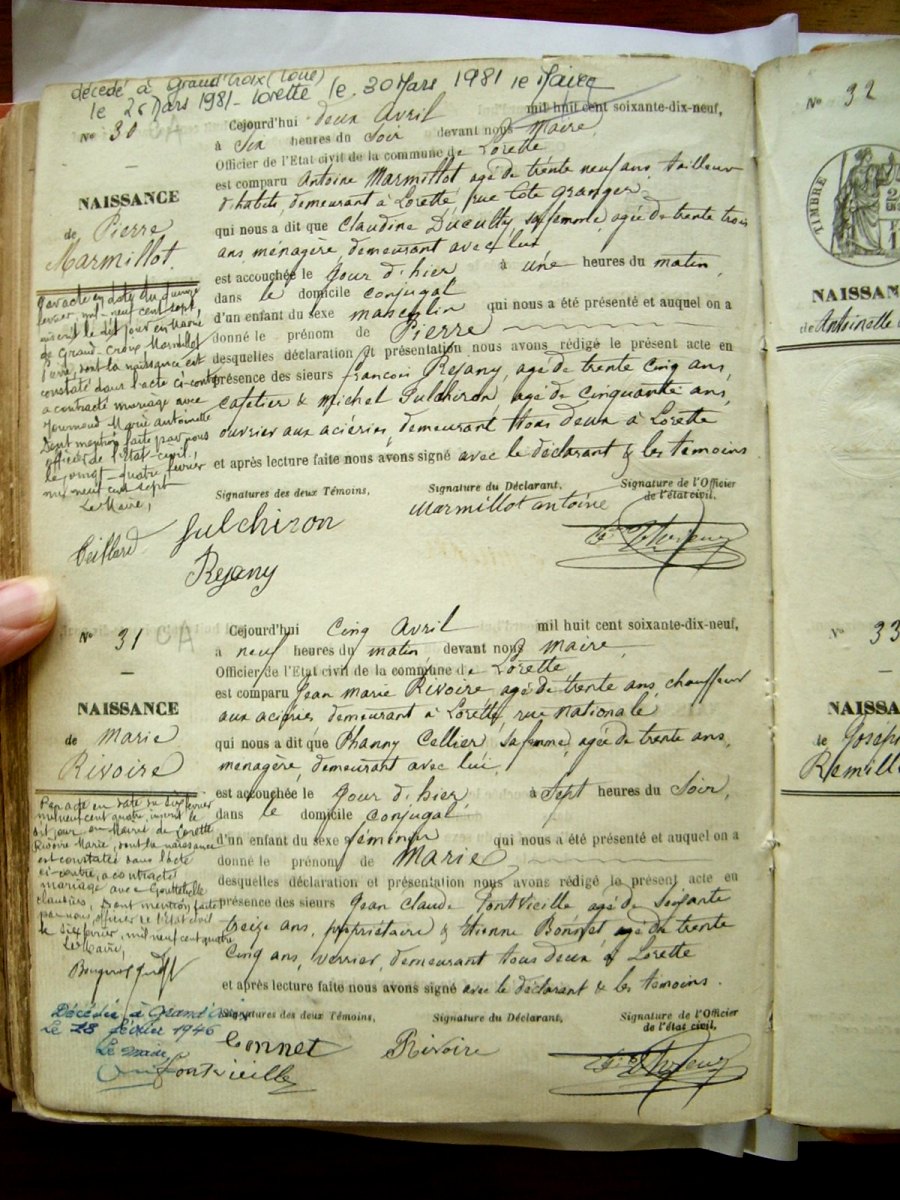 décédé à Grand'Croix (Loire)
le 26 Mars 1981 - Lorette le 30 Mars 1981 le Maire
N° 30
NAISSANCE
de Pierre
Marmillot.
Cejourd'hui deux Avril mil huit cent soixante-dix-neuf,
à Six heures du Soir devant nous Maire,
Officier de l'Etat civil de la commune de Lorette
est comparu Antoine Marmillot agé de trente neuf ans, tailleur
d'habits, demeurant à Lorette, rue Côte Granger
qui nous a dit que Claudine Ducultty, sa femme, agée de trente trois
ans ménagère, demeurant avec lui,
est accouchée le Jour d'hier à une heures du matin,
dans le domicile conjugal
d'un enfant du sexe masculin qui nous a été présenté et auquel on a
donné le prénom de Pierre
desquelles déclaration et présentation nous avons rédigé le présent acte en
présence des sieurs françois Rejany, agé de trente cinq ans,
cafetier & Michel Sulchiron, agé de cinquante ans,
ouvrier aux aciéries, demeurant tous deux à Lorette
et après lecture faite nous avons signé avec le déclarant & les témoins
Signatures des deux Témoins, Signature du Déclarant, Signature de l'Officier
de l'état civil,
Sulchiron Marmillot antoine
Rejany
Par acte en date du quinze
février, mil-neuf cent sept,
inscrit le dit jour en Mairie
de Grand-Croix Marmillot
Pierre, dont la naissance est
constaté dans l'acte ci-contre
a contracté mariage avec
Journoud Marie Antoinette
Dont mention faite par nous
officier de l'état-civil,
le vingt-quatre février
mil neuf cent sept
Le Maire,
N° 31
NAISSANCE
de Marie
Rivoire
Cejourd'hui Cinq Avril mil huit cent soixante-dix-neuf,
à neuf heures du matin devant nous Maire
Officier de l'Etat civil de la commune de Lorette
est comparu Jean Marie Rivoire agé de trente ans, chauffeur
aux aciéries demeurant à Lorette, rue Nationale
qui nous a dit que Phanny Cellier sa femme, agée de trente ans,
menagère, demeurant avec lui,
est accouchée le Jour d'hier, à Sept heures du Soir,
dans le domicile conjugal
d'un enfant du sexe féminin qui nous a été présenté et auquel on a
donné le prénom de Marie
desquelles déclaration et présentation nous avons rédigé le présent acte en
présence des sieurs Jean Claude Fontvieille agé de Soixante
treize ans, propriétaire & Etienne Bonnet agé de trente
Cinq ans, verrier, demeurant tous deux à Lorette
et après lecture faite nous avons signé avec le déclarant & les témoins.
Signatures des deux Témoins, Signature du Déclarant, Signature de l'Officier
de l'état civil,
Bonnet Rivoire
Fontvieille
Par acte en date du six février
mil neuf cent quatre, inscrit le
dit jour en Mairie de Lorette
Rivoire Marie, dont la naissance
est constatée dans l'acte
ci-contre, a contracté
mariage avec
claudius, Dont mention faite
par nous officier de l'Etat civil
le six février, mil neuf cent quatre
Le Maire,
Décédée à Grand'Croix
Le 28 février 1946
Le Maire
N° 32
TIMBRE
NAISSAN
de Antoinette
N° 33
NAISSA
de Joseph
Remill